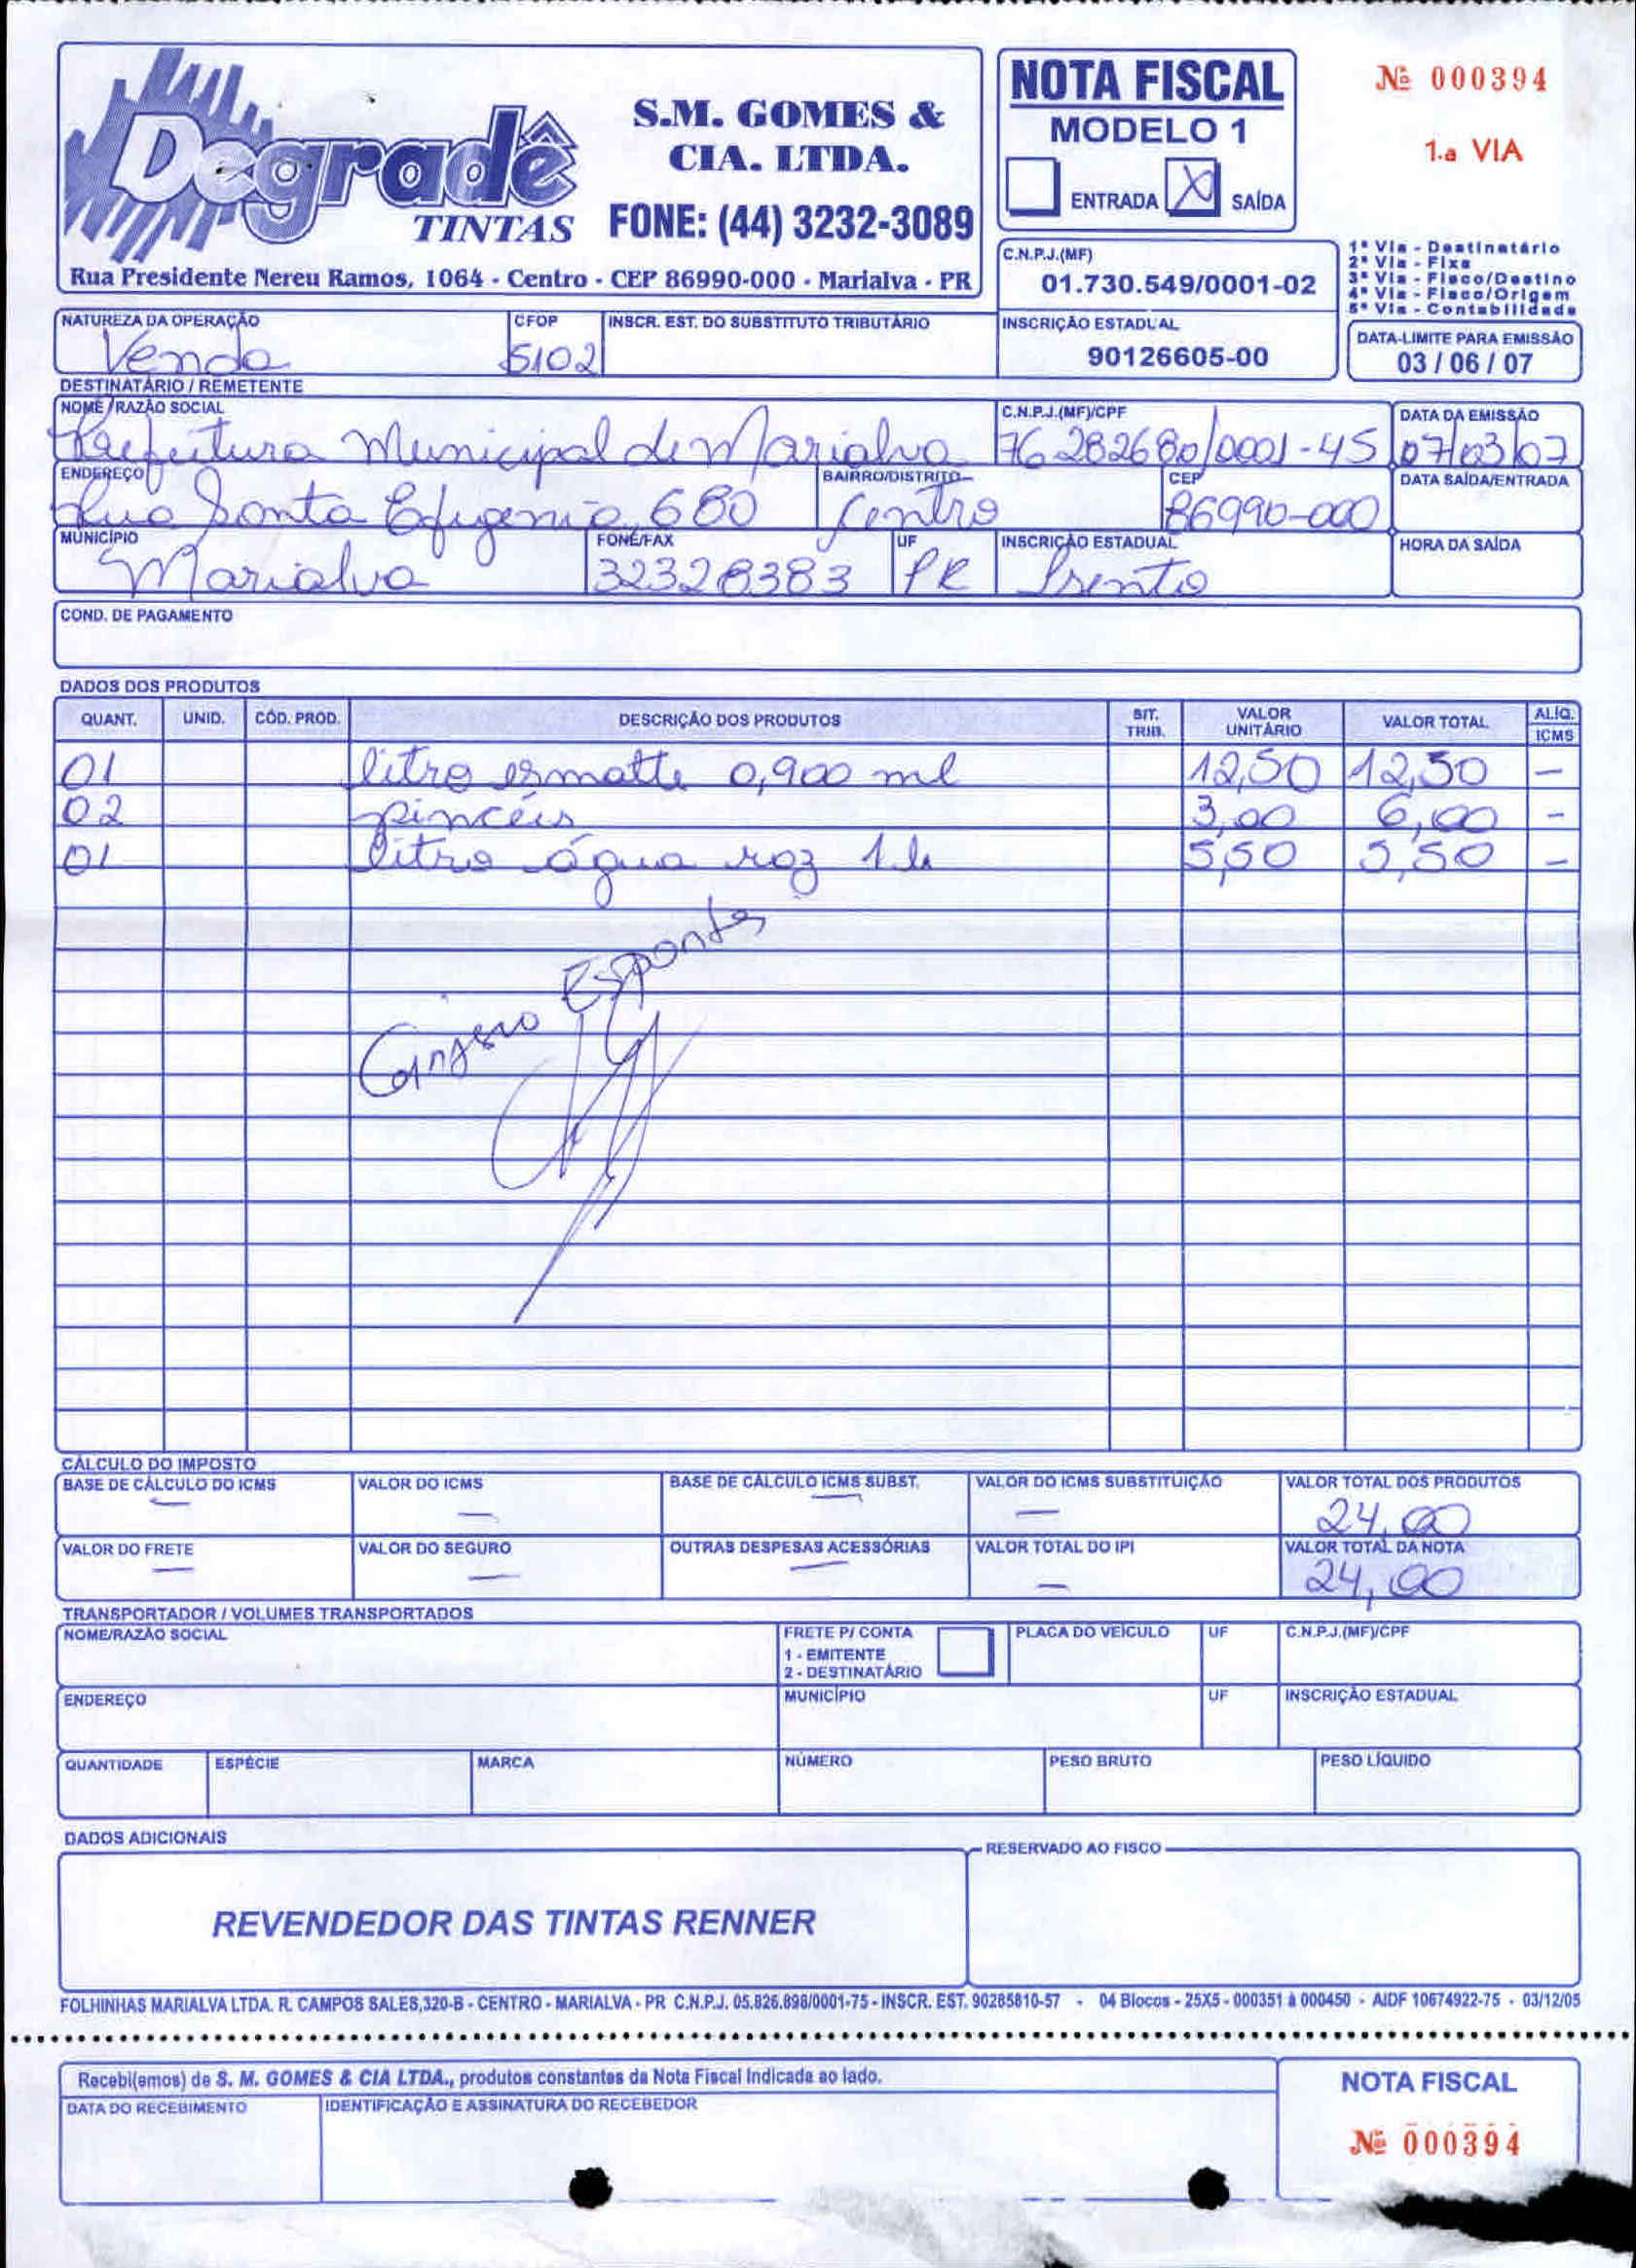 Degradê
TINTAS
S.M. GOMES &
CIA. LTDA.
FONE: (44) 3232-3089
Rua Presidente Nereu Ramos, 1064 - Centro - CEP 86990-000 - Marialva - PR
NOTA FISCAL
MODELO 1
ENTRADA X SAÍDA
Nº 000394
1.a VIA
C.N.P.J.(MF)
01.730.549/0001-02
1ª Via - Destinatário
2ª Via - Fixa
3ª Via - Fisco/Destino
4ª Via - Fisco/Origem
5ª Via - Contabilidade
NATUREZA DA OPERAÇÃO CFOP INSCR. EST. DO SUBSTITUTO TRIBUTÁRIO INSCRIÇÃO ESTADUAL DATA-LIMITE PARA EMISSÃO
Venda 5102 90126605-00 03 / 06 / 07
DESTINATÁRIO / REMETENTE
NOME / RAZÃO SOCIAL C.N.P.J.(MF)/CPF DATA DA EMISSÃO
Prefeitura Municipal de Marialva 76282680/0001-45 07/03/07
ENDEREÇO BAIRRO/DISTRITO CEP DATA SAÍDA/ENTRADA
Rua Santa Efigenia, 680 Centro 86990-000
MUNICÍPIO FONE/FAX UF INSCRIÇÃO ESTADUAL HORA DA SAÍDA
Marialva 32328383 PR Isento
COND. DE PAGAMENTO
DADOS DOS PRODUTOS
QUANT. UNID. CÓD. PROD. DESCRIÇÃO DOS PRODUTOS SIT. TRIB. VALOR UNITÁRIO VALOR TOTAL ALÍQ. ICMS
01 litro esmalte 0,900 ml 12,50 12,50 —
02 pincéis 3,00 6,00 —
01 litro água raz 1 lt 5,50 5,50 —
Esportes
CÁLCULO DO IMPOSTO
BASE DE CÁLCULO DO ICMS VALOR DO ICMS BASE DE CÁLCULO ICMS SUBST. VALOR DO ICMS SUBSTITUIÇÃO VALOR TOTAL DOS PRODUTOS
— — — — 24,00
VALOR DO FRETE VALOR DO SEGURO OUTRAS DESPESAS ACESSÓRIAS VALOR TOTAL DO IPI VALOR TOTAL DA NOTA
— — — — 24,00
TRANSPORTADOR / VOLUMES TRANSPORTADOS
NOME/RAZÃO SOCIAL FRETE P/ CONTA PLACA DO VEÍCULO UF C.N.P.J.(MF)/CPF
1 - EMITENTE
2 - DESTINATÁRIO
ENDEREÇO MUNICÍPIO UF INSCRIÇÃO ESTADUAL
QUANTIDADE ESPÉCIE MARCA NÚMERO PESO BRUTO PESO LÍQUIDO
DADOS ADICIONAIS
RESERVADO AO FISCO
REVENDEDOR DAS TINTAS RENNER
FOLHINHAS MARIALVA LTDA. R. CAMPOS SALES,320-B - CENTRO - MARIALVA - PR C.N.P.J. 05.826.898/0001-75 - INSCR. EST. 90285810-57 - 04 Blocos - 25X5 - 000351 à 000450 - AIDF 10674922-75 - 03/12/05
Recebi(emos) de S. M. GOMES & CIA LTDA., produtos constantes da Nota Fiscal Indicada ao lado.
DATA DO RECEBIMENTO IDENTIFICAÇÃO E ASSINATURA DO RECEBEDOR
NOTA FISCAL
Nº 000394